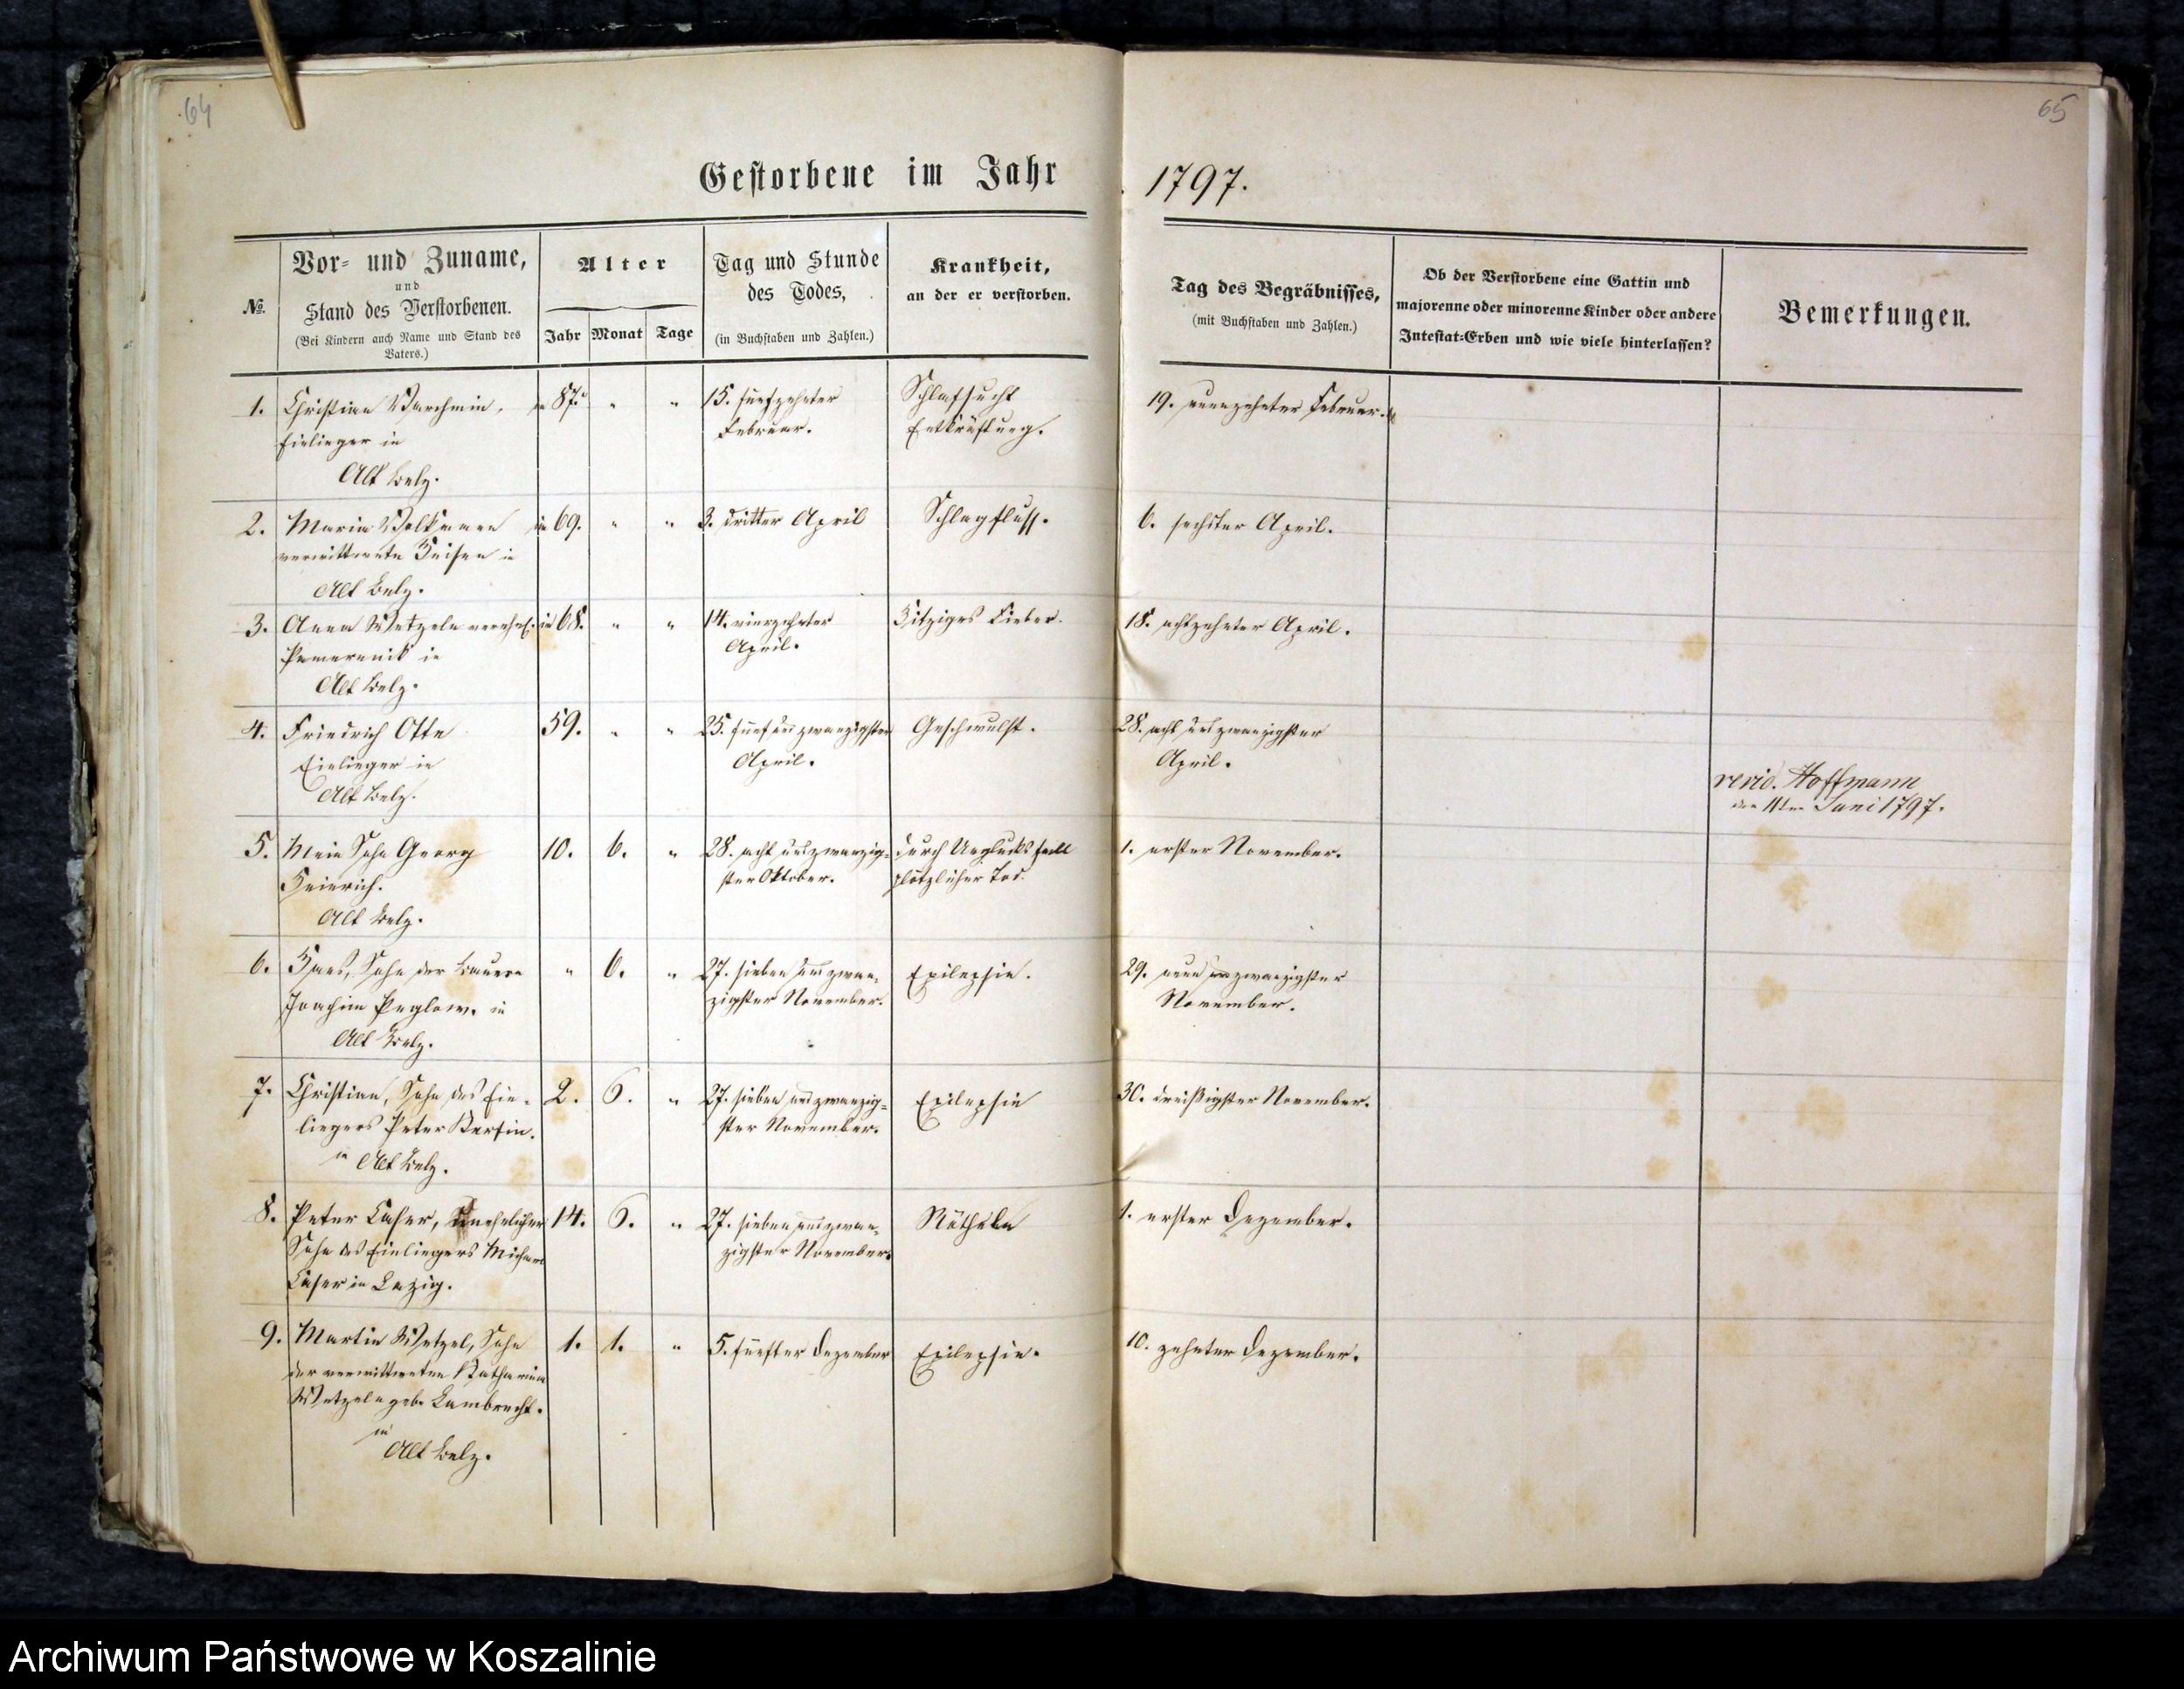 64
65
Gestorbene im Jahr 1797.
№.
Vor- und Zuname,
und
Stand des Verstorbenen.
(Bei Kindern auch Name und Stand des
Vaters.)
Alter
Jahr Monat Tage
Tag und Stunde
des Todes,
(in Buchstaben und Zahlen.)
Krankheit,
an der er verstorben.
Tag des Begräbnisses,
(mit Buchstaben und Zahlen.)
Ob der Verstorbene eine Gattin und
majorenne oder minorenne Kinder oder andere
Intestat-Erben und wie viele hinterlassen?
Bemerkungen.
1. Christian Varchmin, 87. " " 15. fünfzehnter Schlafsucht 19. neunzehnter Februar.
Einlieger in Februar. Entkräftung.
Alt Belz.
2. Maria Volkmann in 69. " " 3. dritter April Schlagfluss. 6. sechster April.
verwittwete Heisen in
Alt Belz.
3. Anna Wetzeln verehel. in 68. " " 14. vierzehnter Hitziges Fieber. 18. achtzehnter April.
Pomerenick in April.
Alt Belz.
4. Friedrich Otte 59. " " 25. fünf und zwanzigster Geschwulst. 28. acht und zwanzigster
Einlieger in April. April.
Alt Belz.
revid. Hoffmann
den 11ten Juni 1797.
5. Mein Sohn Georg 10. 6. " 28. acht und zwanzig- durch Unglücksfall 1. erster November.
Heinrich. ster Oktober. plötzlicher Tod.
Alt Belz.
6. Hans, Sohn des Bauern " 6. " 27. sieben und zwan- Epilepsie. 29. neun und zwanzigster
Joachim Peglow. in zigster November. November.
Alt Belz.
7. Christian, Sohn des Ein- 2. 6. " 27. sieben und zwanzig- Epilepsie 30. dreißigster November.
liegers Peter Kersin. ster November.
in Alt Belz.
8. Peter Caser, unehelicher 14. 6. " 27. sieben und zwan- Rötheln 1. erster Dezember.
Sohn des Einliegers Michael zigster November.
Caser in Lazig.
9. Martin Wetzel, Sohn 1. 1. " 5. fünfter Dezember Epilepsie. 10. zehnter Dezember.
der verwittweten Katharina
Wetzeln geb. Lambrecht.
in
Alt Belz.
Archiwum Państwowe w Koszalinie